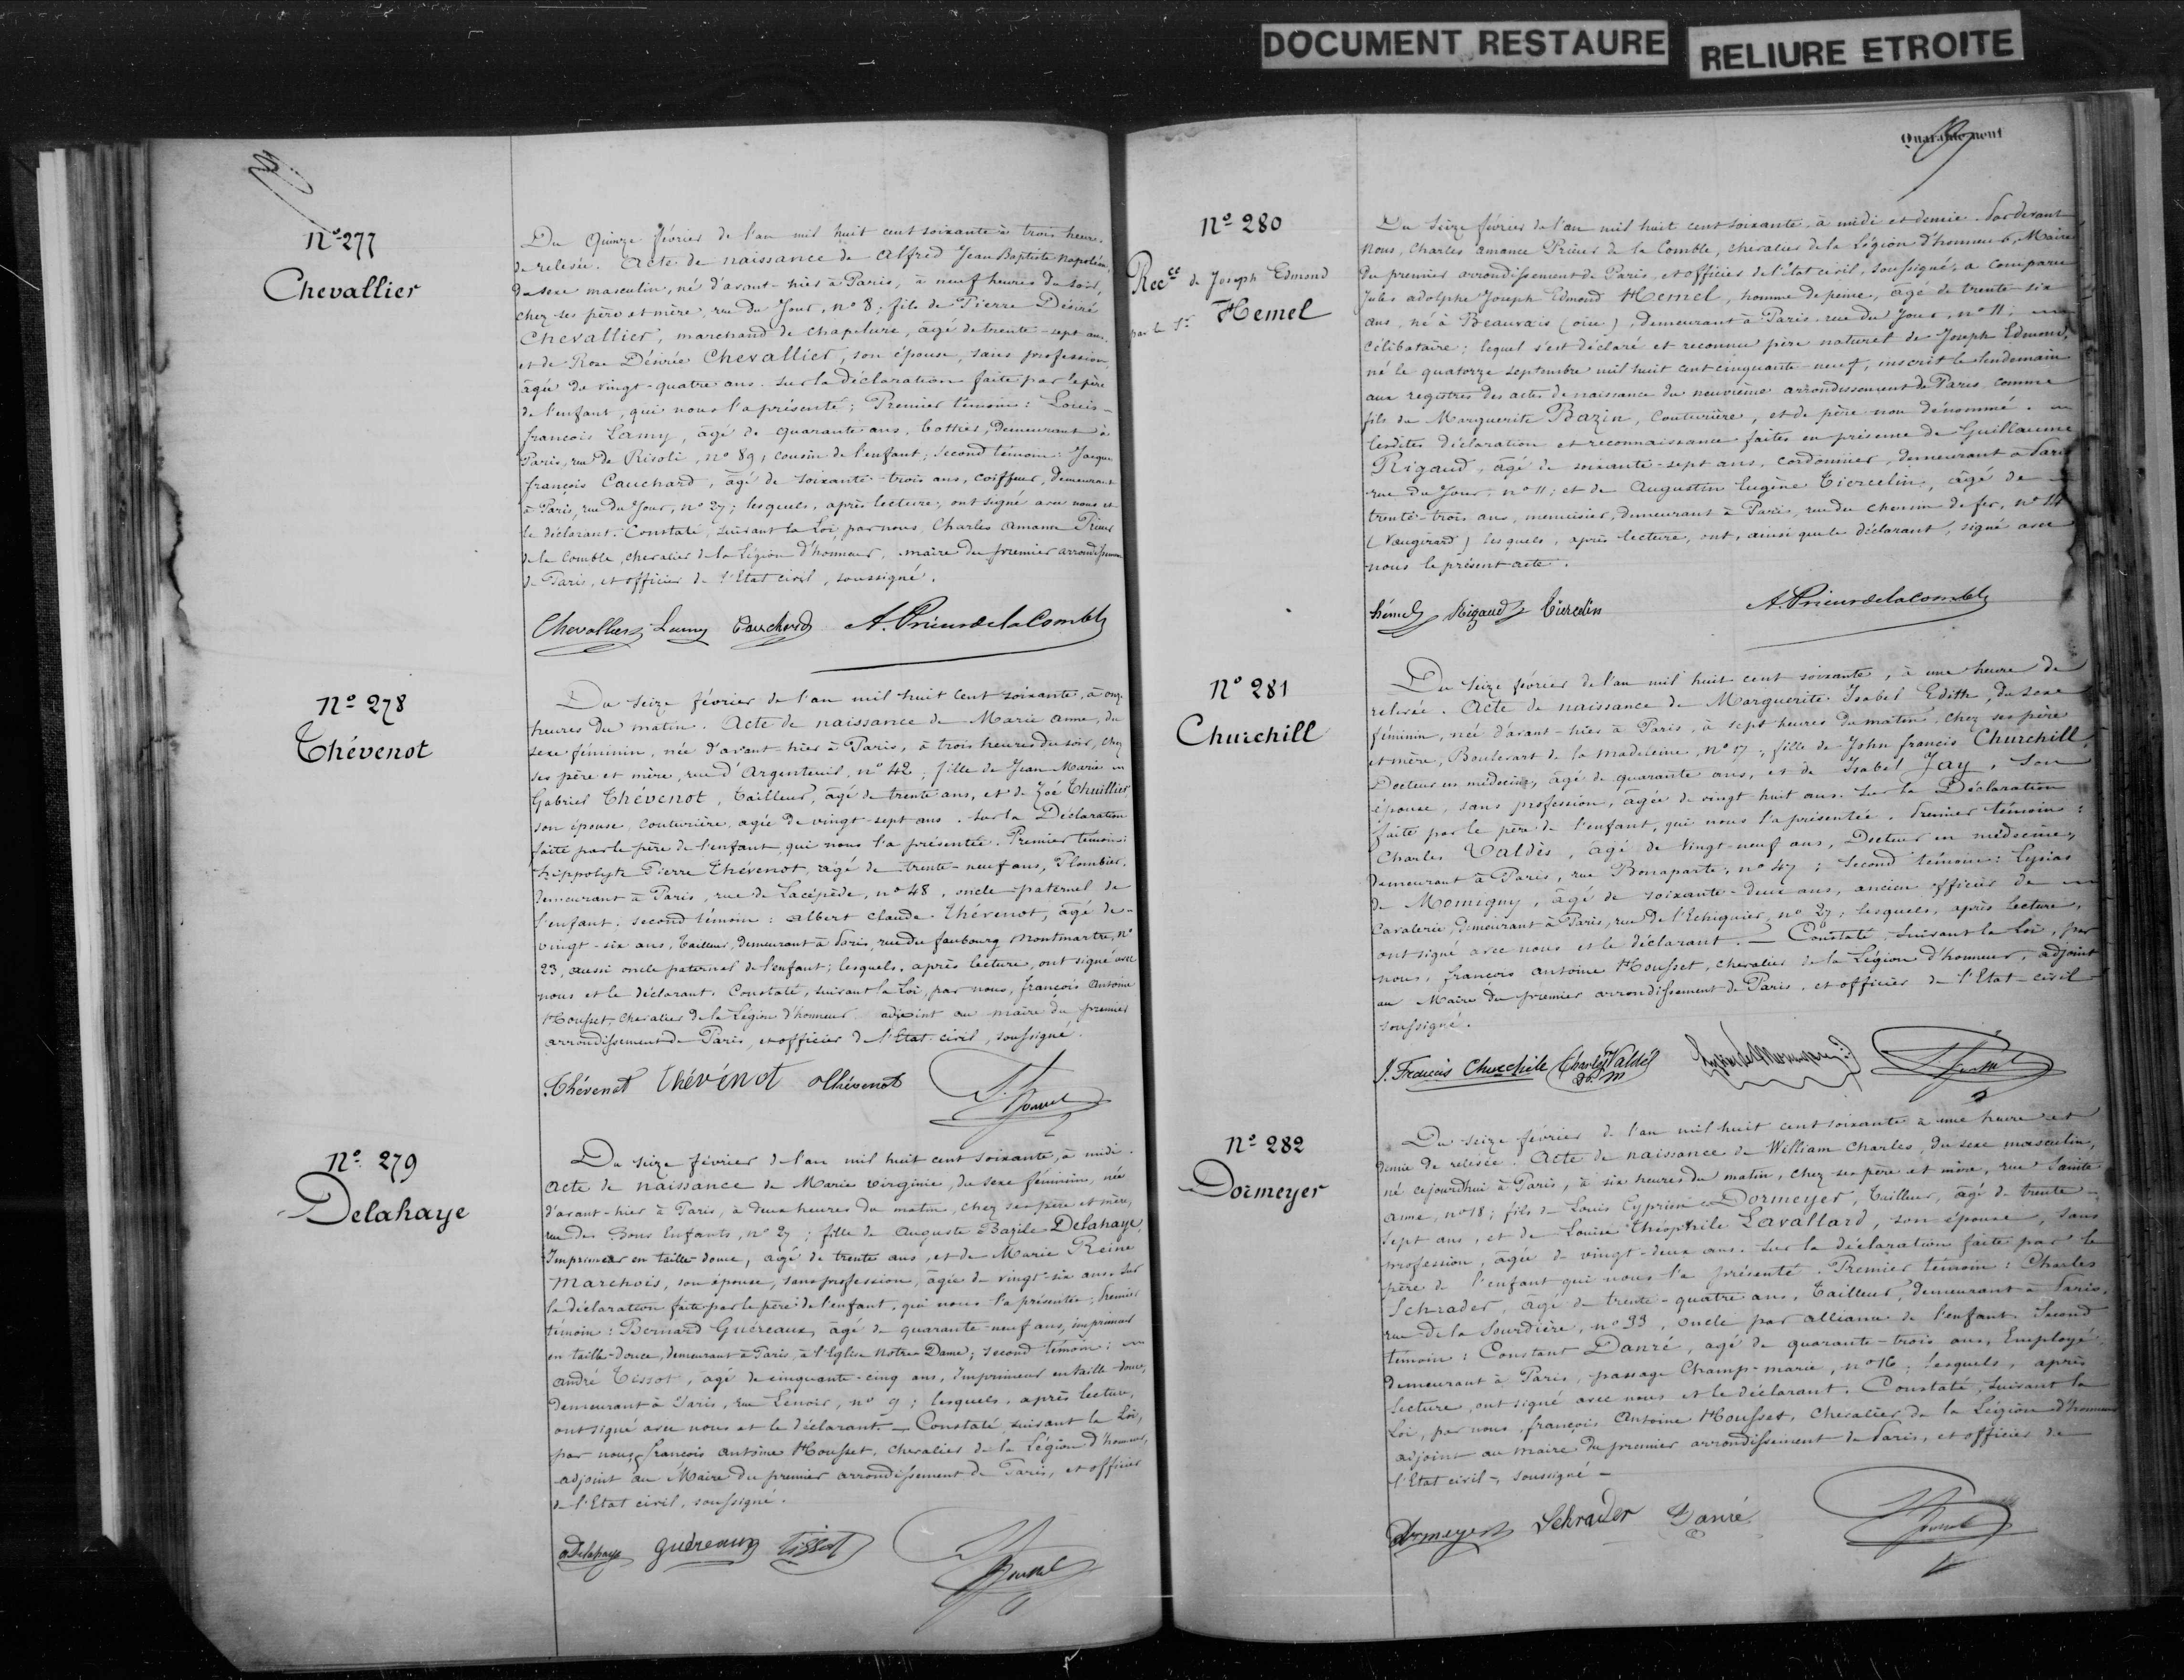 DOCUMENT RESTAURE
RELIURE ETROITE
Nº 277
Chevallier
Du Quinze février de l'an mil huit cent soixante à trois heures
de relevée. Acte de naissance de Alfred Jean Baptiste Napoléon,
du sexe masculin, né d'avant-hier à Paris, à neuf heures du soir,
chez ses père et mère, rue du Jour, nº 8; fils de Pierre Désiré
Chevallier, marchand de chapelure, âgé de trente-sept ans,
et de Rose Désirée Chevallier, son épouse, sans profession,
âgée de vingt-quatre ans. sur la déclaration faite par le père
de l'enfant, qui nous l'a présenté; Premier témoin: Louis-
françois Lamy, âgé de quarante ans, bottier, demeurant à
Paris, rue de Rivoli, nº 89, cousin de l'enfant; second témoin: Jacques
françois Cauchard, âgé de soixante-trois ans, coiffeur, demeurant
à Paris, rue du Jour, nº 27; lesquels, après lecture, ont signé avec nous et
le déclarant. Constaté, suivant la Loi, par nous, Charles Amance Prieur
de la Comble, chevalier de la Légion d'honneur, maire du premier arrondissement
de Paris, et officier de l'Etat civil, soussigné.
Chevallier Lamy Cauchard A. Prieur de la Comble
Nº 278
Thévenot
Du seize février de l'an mil huit cent soixante, à onze
heures du matin. Acte de naissance de Marie anne, du
sexe féminin, née d'avant-hier à Paris, à trois heures du soir, chez
ses père et mère, rue d'Argenteuil, nº 42; fille de Jean Marie
Gabriel Thévenot, tailleur, âgé de trente ans, et de Zoé Thuillier
son épouse, couturière, agée de vingt-sept ans. sur la Déclaration
faite par le père de l'enfant, qui nous l'a présentée. Premier témoin:
hippolyte Pierre Thévenot, âgé de trente-neuf ans, Plombier,
demeurant à Paris, rue de Lacépède, nº 48, oncle paternel de
l'enfant. second témoin: albert claude Thévenot, âgé de
vingt-six ans, tailleur, demeurant à Paris, rue du faubourg Montmartre, nº
23, aussi oncle paternel de l'enfant; lesquels, après lecture, ont signé avec
nous et le déclarant. Constaté, suivant la Loi, par nous, françois Antoine
Housset, chevalier de la Légion d'honneur, adjoint au maire du premier
arrondissement de Paris, et officier de l'Etat civil, soussigné.
Thévenot Thévenot Thévenot
Nº 279
Delahaye
Du seize février de l'an mil huit cent soixante, à midi.
Acte de naissance de Marie virginie, du sexe féminin, née
d'avant-hier à Paris, à deux heures du matin, chez ses père et mère,
rue des Bons Enfants, nº 27; fille de Auguste Bazile Delahaye,
Imprimeur en taille-douce, agé de trente ans, et de Marie Reine
Marchois, son épouse, sans profession, âgée de vingt-six ans. sur
la déclaration faite par le père de l'enfant, qui nous l'a présentée. Premier
témoin: Bernard Guéreaux, âgé de quarante-neuf ans, imprimeur
en taille-douce, demeurant à Paris, à l'Eglise Notre-Dame; second témoin:
André Tissot, âgé de cinquante-cinq ans, Imprimeur en taille-douce,
demeurant à Paris, rue Lenoir, nº 9; lesquels, après lecture,
ont signé avec nous et le déclarant. Constaté, suivant la Loi,
par nous, françois antoine Housset, chevalier de la Légion d'honneur,
adjoint au Maire du premier arrondissement de Paris, et officier
de l'Etat civil, soussigné.
aDelahaye guéreaux tissot
Quarante-neuf
Nº 280
Recce de Joseph Edmond
Hemel
par le Sr
Du Seize février de l'an mil huit cent soixante, à midi et demie. Pardevant
Nous, Charles Amance Prieur de la Comble, chevalier de la Légion d'honneur, Maire
du premier arrondissement de Paris, et officier de l'état civil, soussigné, a comparu
Jules adolphe Joseph Edmond Hemel, homme de peine, âgé de trente-six
ans, né à Beauvais (oise), demeurant à Paris rue du Jour, nº 11,
célibataire; lequel s'est déclaré et reconnu père naturel de Joseph Edmond,
né le quatorze septembre mil huit cent cinquante-neuf, inscrit le lendemain
aux registres des actes de naissance du neuvième arrondissement de Paris comme
fils de Marguerite Bazin, couturière, et de père non dénommé.
lesdites déclaration et reconnaissance faites en présence de Guillaume
Rigaud, âgé de soixante-sept ans, cordonnier, demeurant à Paris
rue du Jour, nº 11; et de Augustin Eugène Tiercelin, âgé de
trente-trois ans, menuisier, demeurant à Paris, rue du chemin de fer, nº 14
(Vaugirard) lesquels, après lecture, ont, ainsi que le déclarant, signé avec
nous le présent acte.
hémel Rigaud Tiercelin A. Prieur de la Comble
Nº 281
Churchill
Du seize février de l'an mil huit cent soixante, à une heure de
relevée. Acte de naissance de Marguerite Isabel Edith, du sexe
féminin, née d'avant-hier à Paris, à sept heures du matin, chez ses père
et mère, Boulevart de la Madeleine, nº 17; fille de John francis Churchill,
Docteur en médecine, âgé de quarante ans, et de Isabel Jay, son
épouse, sans profession, âgée de vingt huit ans. Sur la Déclaration
faite par le père de l'enfant, qui nous l'a présentée. Premier témoin:
Charles Valdès, âgé de vingt-neuf ans, Docteur en médecine,
demeurant à Paris, rue Bonaparte, nº 47; Second témoin: Lysias
de Momigny, âgé de soixante-deux ans, ancien officier de
Cavalerie, demeurant à Paris, rue de l'Echiquier, nº 27; lesquels, après lecture,
ont signé avec nous et le déclarant. — Constaté, suivant la Loi, par
nous, françois antoine Housset, chevalier de la Légion d'honneur, adjoint
au Maire du premier arrondissement de Paris, et officier de l'Etat-civil
soussigné.
J. Francis Churchill Charles Valdès
Nº 282
Dormeyer
Du seize février de l'an mil huit cent soixante à une heure et
demie de relevée. Acte de naissance de William Charles, du sexe masculin,
né cejourd'hui à Paris, à six heures du matin, chez ses père et mère, rue Sainte
anne, nº 18; fils de Louis Cyprien Dormeyer, tailleur, âgé de trente-
sept ans, et de Louise théophile Lavallard, son épouse, sans
profession, âgée de vingt-deux ans. Sur la déclaration faite par le
père de l'enfant qui nous l'a présenté. Premier témoin: Charles
Schrader, âgé de trente-quatre ans, tailleur, demeurant à Paris,
rue de la Sourdière, nº 33, oncle par alliance de l'enfant. Second
témoin: Constant Danré, agé de quarante-trois ans, Employé,
demeurant à Paris, passage Champ-marie, nº 16; lesquels, après
lecture, ont signé avec nous et le déclarant. Constaté, suivant la
Loi, par nous, françois Antoine Housset, chevalier de la Légion d'honneur
adjoint au maire du premier arrondissement de Paris, et officier de
l'Etat civil, soussigné
Dormeyer Schrader Danré